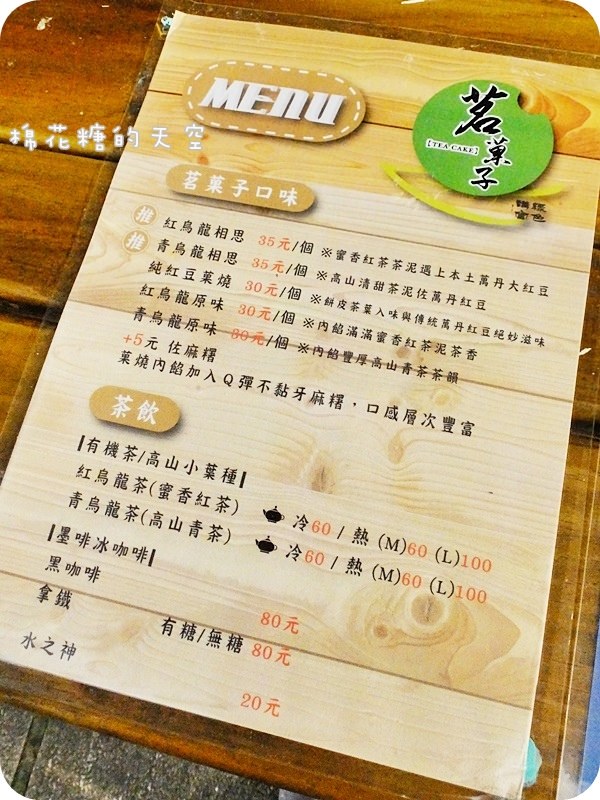 MENU
茗菓子
【TEA CAKE】
棉花糖的天空
茗菓子口味
推 紅烏龍相思 35元/個 ※蜜香紅茶茶泥遇上本土萬丹大紅豆
推 青烏龍相思 35元/個 ※高山清甜茶泥佐萬丹紅豆
純紅豆菓燒 30元/個 ※餅皮茶葉入味與傳統萬丹紅豆絕妙滋味
紅烏龍原味 30元/個 ※內餡滿滿蜜香紅茶泥茶香
青烏龍原味 30元/個 ※內餡豐厚高山青茶茶韻
+5元 佐麻糬
菓燒內餡加入Q彈不黏牙麻糬，口感層次豐富
茶飲
|有機茶/高山小葉種|
紅烏龍茶(蜜香紅茶) 冷60 / 熱 (M)60 (L)100
青烏龍茶(高山青茶) 冷60 / 熱 (M)60 (L)100
|墨啡冰咖啡|
黑咖啡 80元
拿鐵 有糖/無糖 80元
水之神 20元